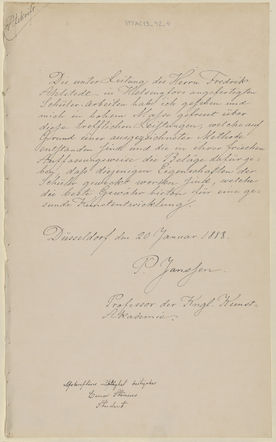 Afskrift
Die unter Leitung des Herrn Fredrik
Ahlstedt in Helsingfors angefertigten
Schüler-Arbeiten hab ich gesehen und
mich in hohem Masse gefreut über
diese trefflichen Leistungen, welche auf
Grund einer ausgezeichneten Methode
entstanden sind und die in ihrer frischen
Auffassungsweise die Belege dafür ge-
ben, dass diejenigen Eigenschaften der
Schüler geweckt worden sind, welche
die beste Gewähr bieten für eine ge-
sunde Kunstentwicklung.
Düsseldorf den 20 Januar 1888.
P. Janssen.
Professor der Kngl. Kunst-
Akademie.
Afskriftens riktighet betygar
Student